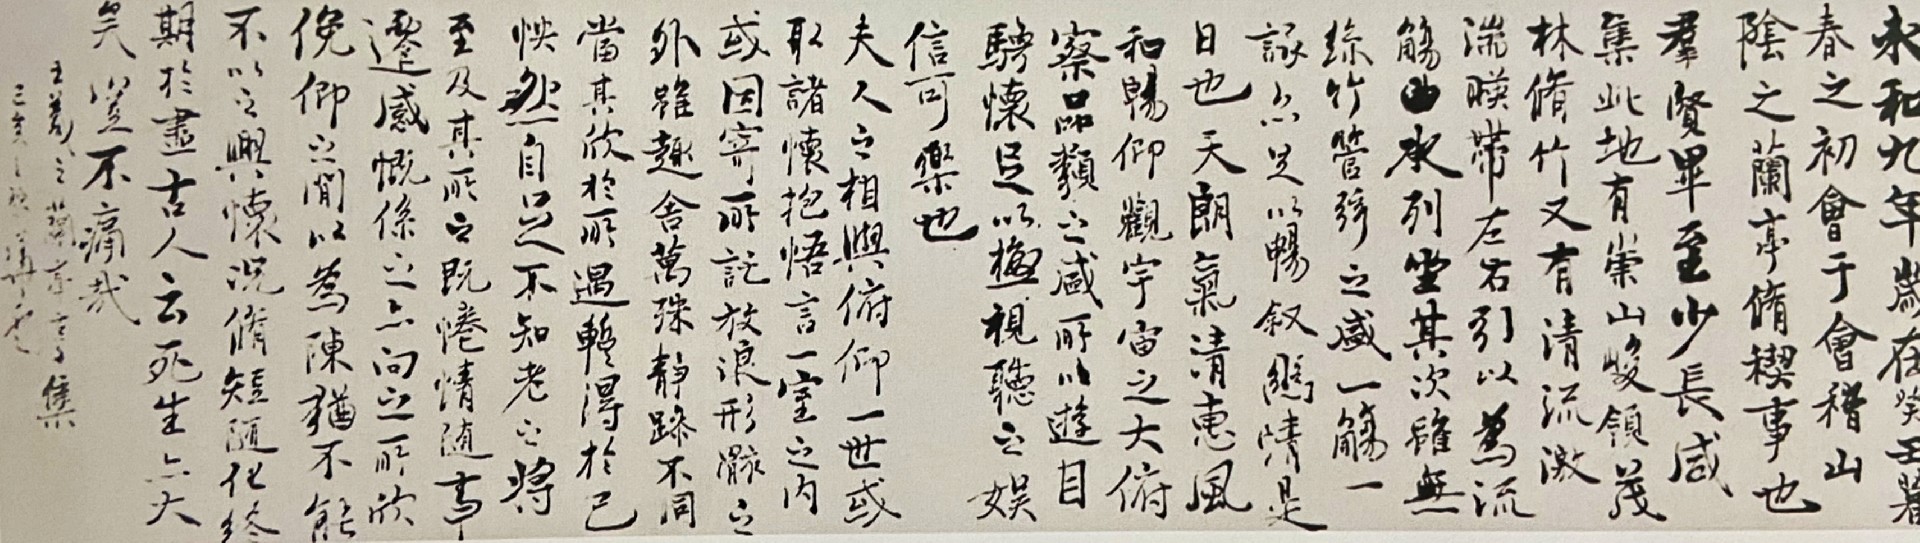 永和九年歲在癸丑暮
春之初會于會稽山
陰之蘭亭脩禊事也
羣賢畢至少長咸
集此地有崇山峻領茂
林脩竹又有清流激
湍暎帶左右引以為流
觴曲水列坐其次雖無
絲竹管絃之盛一觴一
詠亦足以暢叙幽情是
日也天朗氣清惠風
和暢仰觀宇宙之大俯
察品類之盛所以遊目
騁懷足以極視聽之娛
信可樂也
夫人之相與俯仰一世或
取諸懷抱悟言一室之內
或因寄所託放浪形骸之
外雖趣舍萬殊靜躁不同
當其欣於所遇暫得於己
怏然自足不知老之將
至及其所之既惓情隨事
遷感慨係之亦向之所欣
俛仰之間以為陳猶不能
不以之興懷況脩短隨化終
期於盡古人云死生亦大
矣豈不痛哉
王羲之蘭亭序集